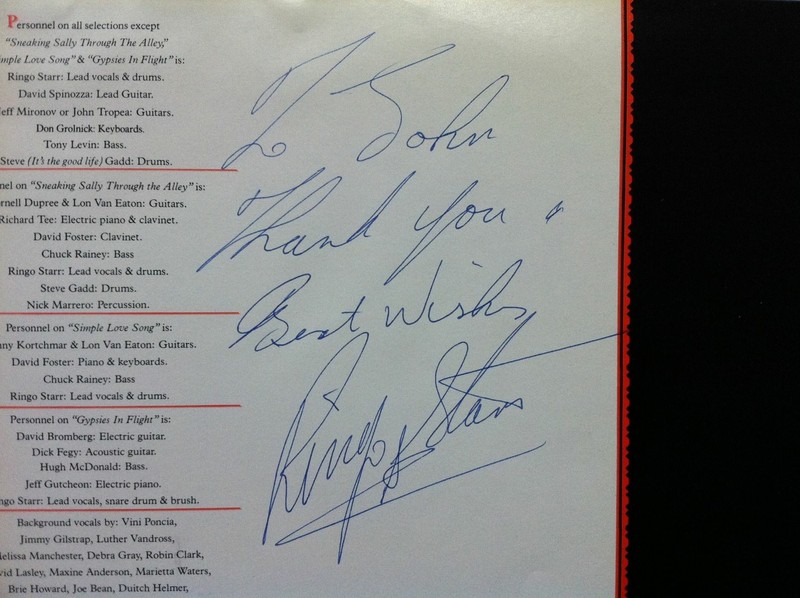 Personnel on all selections except
"Sneaking Sally Through The Alley,"
mple Love Song" & "Gypsies In Flight" is:
Ringo Starr: Lead vocals & drums.
David Spinozza: Lead Guitar.
eff Mironov or John Tropea: Guitars.
Don Grolnick: Keyboards.
Tony Levin: Bass.
Steve (It's the good life) Gadd: Drums.
nel on "Sneaking Sally Through the Alley" is:
rnell Dupree & Lon Van Eaton: Guitars.
Richard Tee: Electric piano & clavinet.
David Foster: Clavinet.
Chuck Rainey: Bass
Ringo Starr: Lead vocals & drums.
Steve Gadd: Drums.
Nick Marrero: Percussion.
Personnel on "Simple Love Song" is:
ny Kortchmar & Lon Van Eaton: Guitars.
David Foster: Piano & keyboards.
Chuck Rainey: Bass
Ringo Starr: Lead vocals & drums.
Personnel on "Gypsies In Flight" is:
David Bromberg: Electric guitar.
Dick Fegy: Acoustic guitar.
Hugh McDonald: Bass.
Jeff Gutcheon: Electric piano.
ngo Starr: Lead vocals, snare drum & brush.
Background vocals by: Vini Poncia,
Jimmy Gilstrap, Luther Vandross,
elissa Manchester, Debra Gray, Robin Clark,
vid Lasley, Maxine Anderson, Marietta Waters,
Brie Howard, Joe Bean, Duitch Helmer,
To John
Thank you
Best Wishes
Ringo Starr